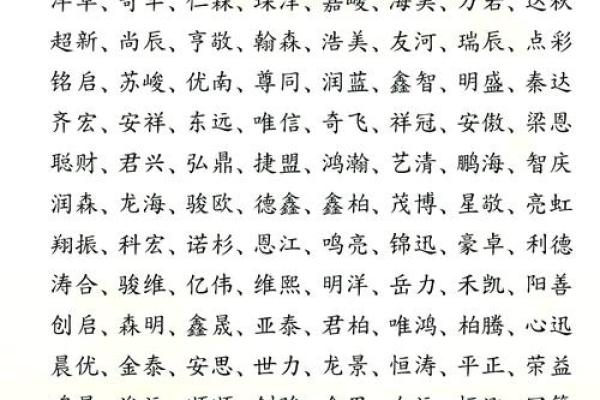 超新、尚辰、亨敬、翰森、浩美、友河、瑞辰、点彩
铭启、苏峻、优南、尊同、润蓝、鑫智、明盛、秦达
齐宏、安祥、东远、唯信、奇飞、祥冠、安傲、梁恩
聪财、君兴、弘鼎、捷盟、鸿瀚、艺清、鹏海、智庆
润森、龙海、骏欧、德鑫、鑫柏、茂博、星敬、亮虹
翔振、科宏、诺杉、恩江、鸣亮、锦迅、豪卓、利德
涛合、骏维、亿伟、维熙、明洋、岳力、禾凯、阳善
创启、森明、鑫晟、亚泰、君柏、唯鸿、柏腾、心迅
晨优、金泰、安思、世力、龙景、恒涛、平正、荣益